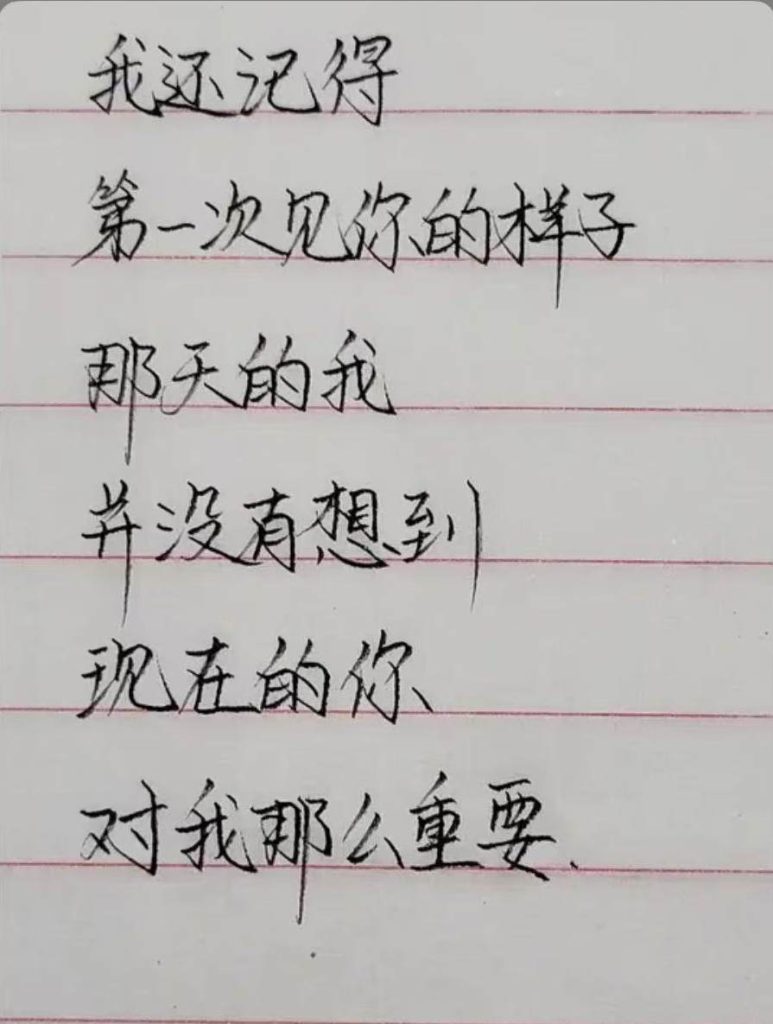 我还记得
第一次见你的样子
那天的我
并没有想到
现在的你
对我那么重要.